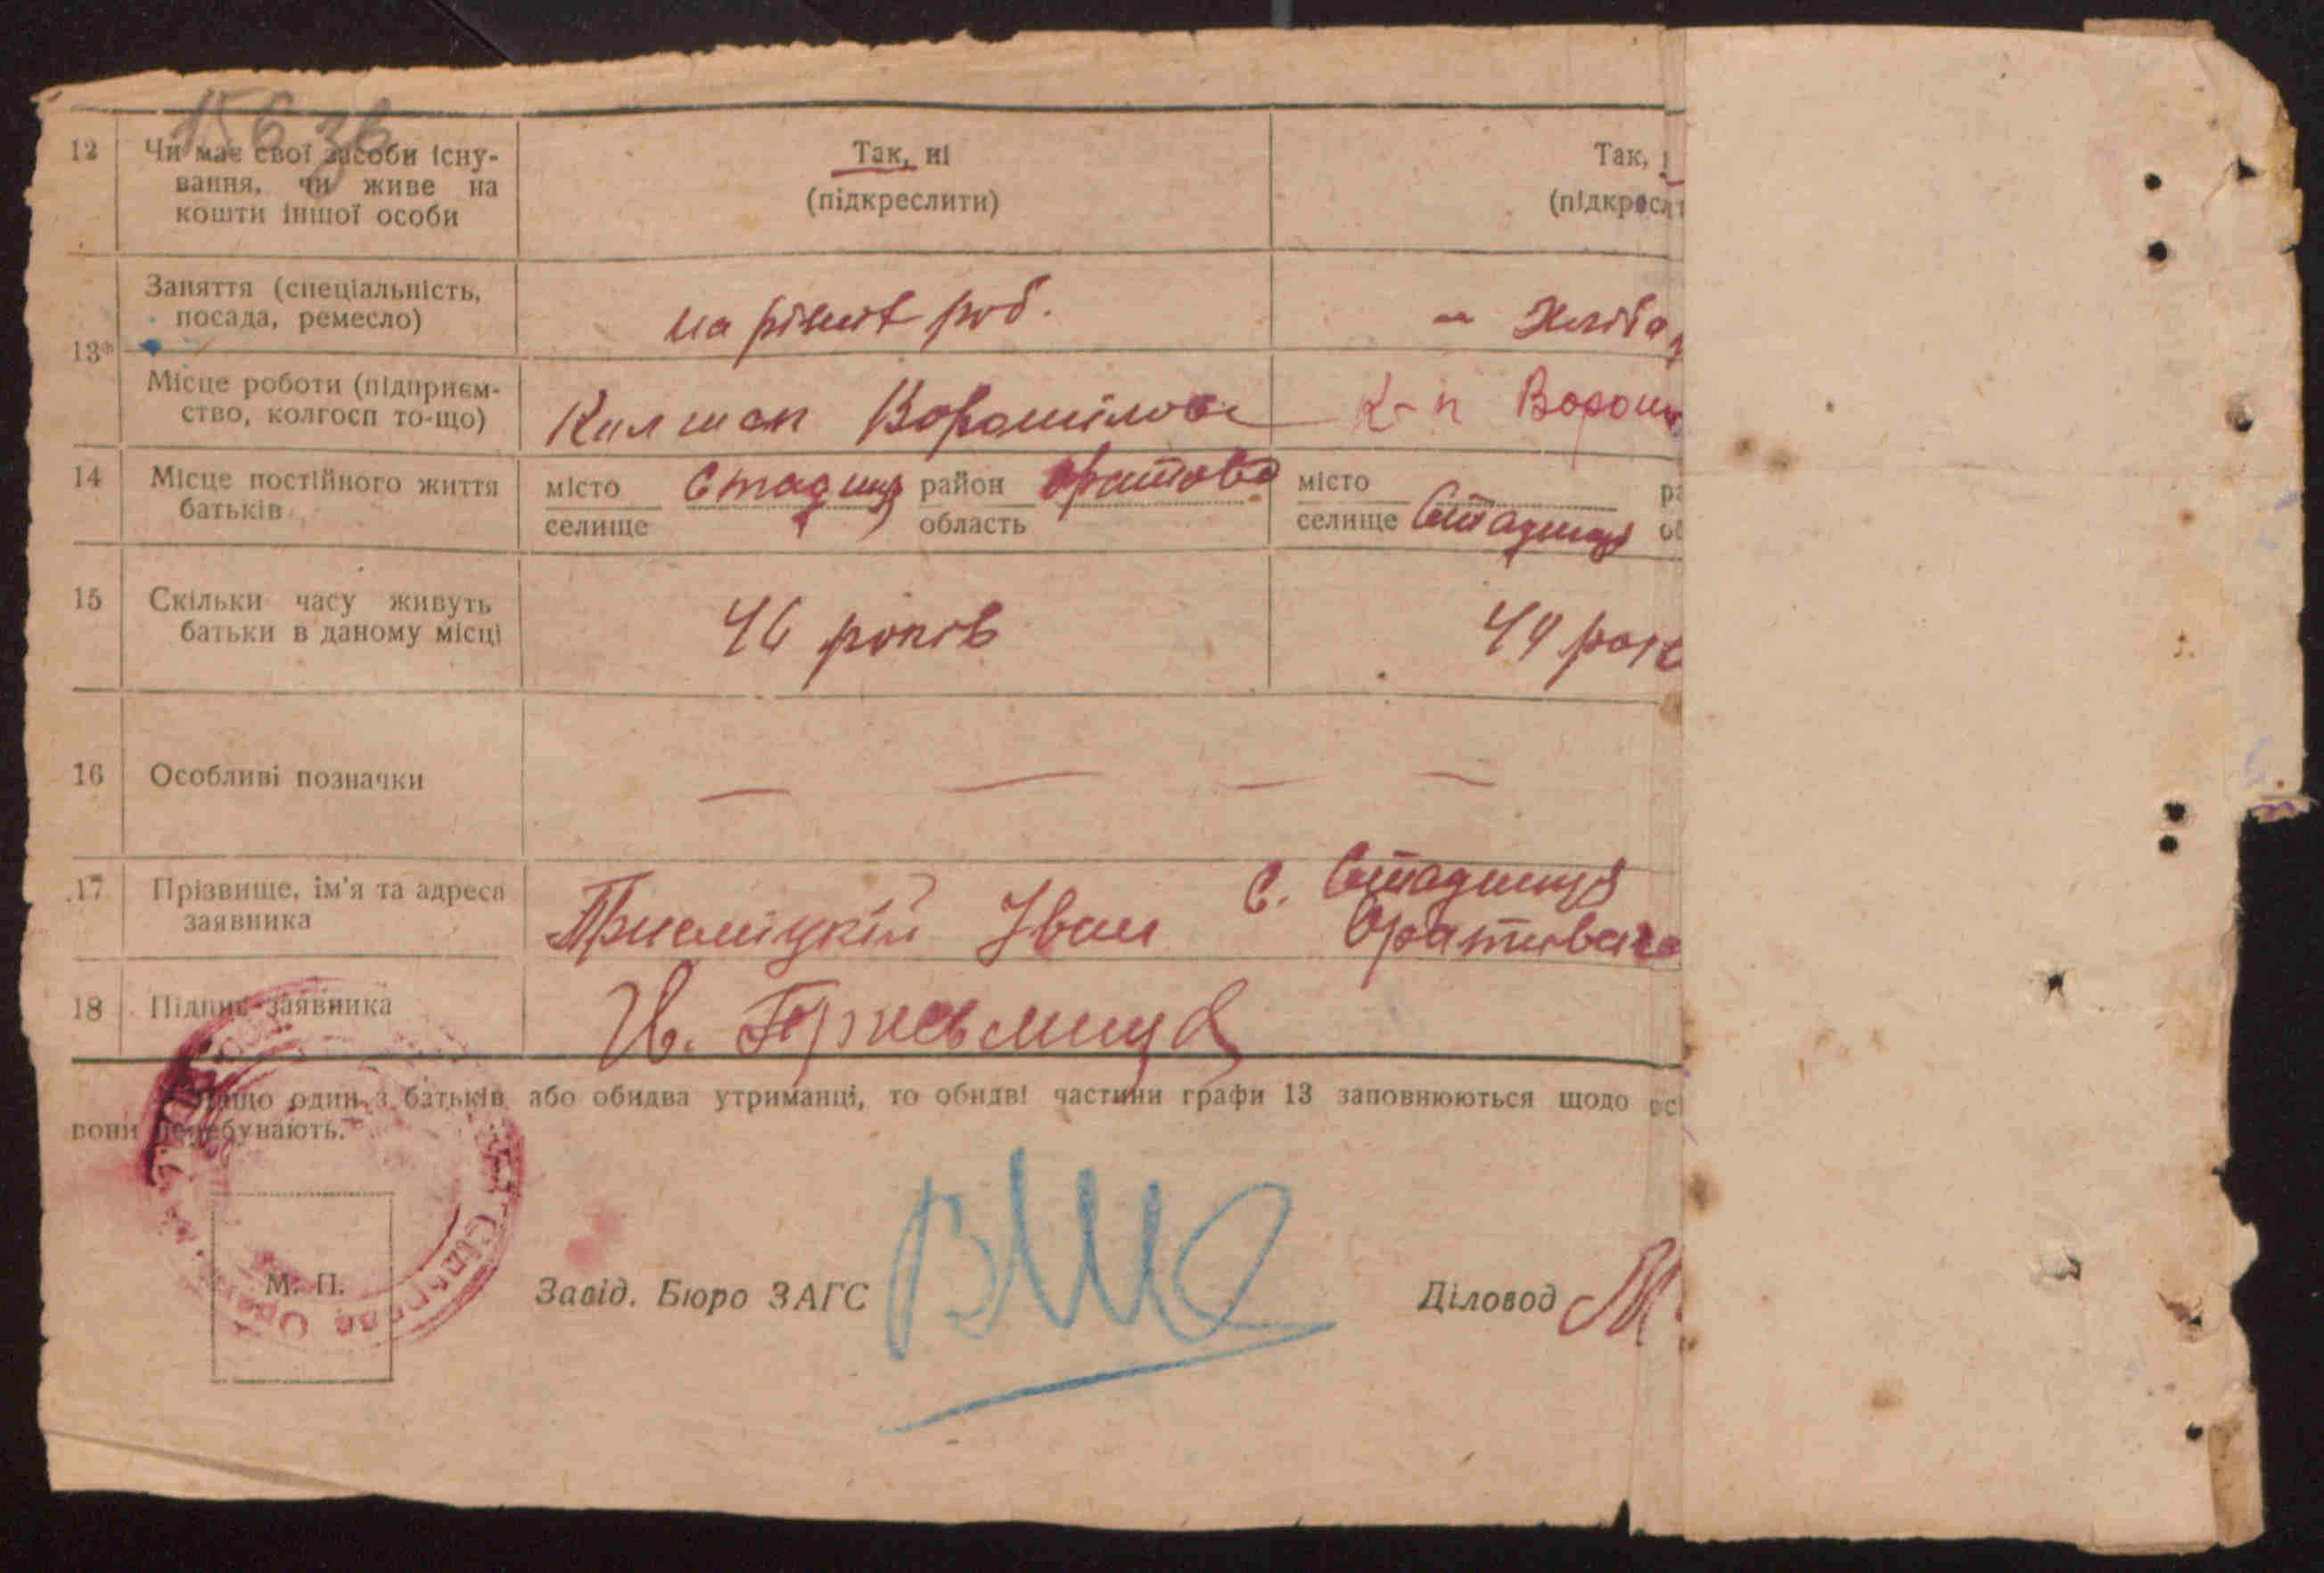 156 зв
12 Чи має свої засоби існу-
вання, чи живе на
кошти іншої особи
Так, ні
(підкреслити)
Так,
(підкресл
13* Заняття (спеціальність,
посада, ремесло)
на різних роб.
Хліба
Місце роботи (підприєм-
ство, колгосп то-що)
Ворошилова
К-п Вороши
14 Місце постійного життя
батьків
місто
селище
Стадниця
район
область
Оратово
місто
селище
Стадниця
15 Скільки часу живуть
батьки в даному місці
46 років
44 рок
16 Особливі позначки
17 Прізвище, ім'я та адреса
заявника
Іван
с. Стадниця
Оратівсько
18 Підпис заявника
Ив.
один з батьків або обидва утриманці, то обидві частини графи 13 заповнюються щодо ос
вони перебувають.
М. П.
Завід. Бюро ЗАГС
Діловод